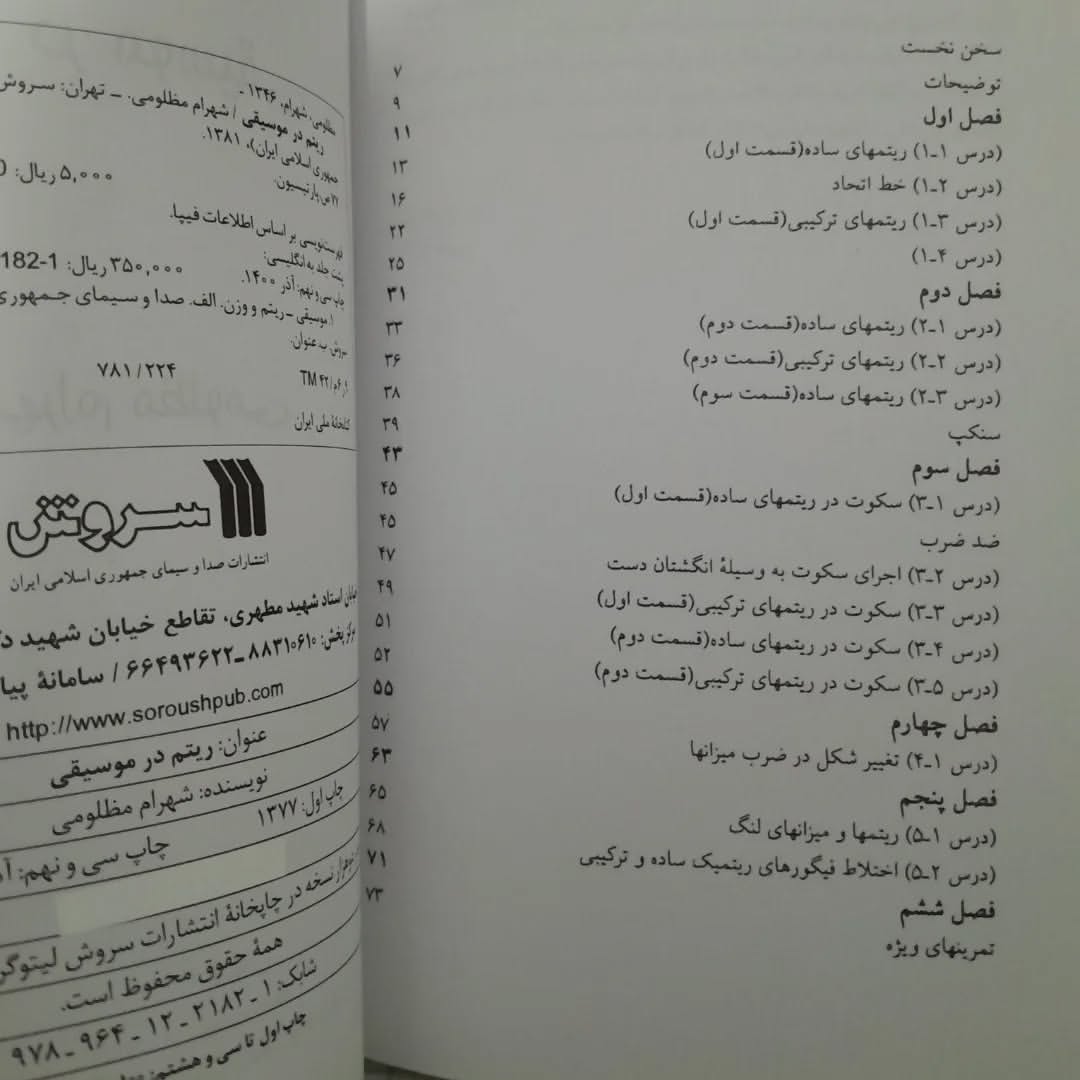 سخن نخست ۷
توضیحات ۹
فصل اول ۱۱
(درس ۱ـ۱) ریتمهای ساده(قسمت اول) ۱۳
(درس ۲ـ۱) خط اتحاد ۱۶
(درس ۳ـ۱) ریتمهای ترکیبی(قسمت اول) ۲۲
(درس ۴ـ۱) ۲۵
فصل دوم ۳۱
(درس ۱ـ۲) ریتمهای ساده(قسمت دوم) ۳۳
(درس ۲ـ۲) ریتمهای ترکیبی(قسمت دوم) ۳۶
(درس ۳ـ۲) ریتمهای ساده(قسمت سوم) ۳۸
سنکپ ۳۹
فصل سوم ۴۳
(درس ۱ـ۳) سکوت در ریتمهای ساده(قسمت اول) ۴۵
ضد ضرب ۴۵
(درس ۲ـ۳) اجرای سکوت به وسیلهٔ انگشتان دست ۴۷
(درس ۳ـ۳) سکوت در ریتمهای ترکیبی(قسمت اول) ۴۹
(درس ۴ـ۳) سکوت در ریتمهای ساده(قسمت دوم) ۵۱
(درس ۵ـ۳) سکوت در ریتمهای ترکیبی(قسمت دوم) ۵۲
فصل چهارم ۵۵
(درس ۱ـ۴) تغییر شکل در ضرب میزانها ۵۷
فصل پنجم ۶۳
(درس ۱ـ۵) ریتمها و میزانهای لنگ ۶۵
(درس ۲ـ۵) اختلاط فیگورهای ریتمیک ساده و ترکیبی ۶۸
فصل ششم ۷۱
تمرینهای ویژه ۷۳
مظلومی، شهرام، ۱۳۴۶ ـ
ریتم در موسیقی / شهرام مظلومی. ـ تهران: سروش
جمهوری اسلامی ایران)، ۱۳۸۱.
۷۲ ص پارتیسیون. ۵,۰۰۰ ریال:
فهرستنویسی بر اساس اطلاعات فیپا.
پشت جلد به انگلیسی:
چاپ سی و نهم: آذر ۱۴۰۰. ۳۵۰,۰۰۰ ریال: 182-1
۱.موسیقی ـ ریتم و وزن. الف. صدا و سیمای جمهوری
سروش. ب.عنوان.
۷۸۱/۲۲۴
TM ۴۲/
کتابخانهٔ ملی ایران
سروش
انتشارات صدا و سیمای جمهوری اسلامی ایران
خیابان استاد شهید مطهری، تقاطع خیابان شهید
مرکز پخش: ۸۸۳۱۰۶۱۰ ـ ۶۶۴۹۳۶۲۲ / سامانهٔ
http://www.soroushpub.com
عنوان: ریتم در موسیقی
نویسنده: شهرام مظلومی
چاپ اول: ۱۳۷۷
چاپ سی و نهم:
نسخه در چاپخانهٔ انتشارات سروش
همهٔ حقوق محفوظ است.
شابک: ۱ ـ ۲۱۸۲ ـ ۱۲ ـ ۹۶۴ ـ ۹۷۸
چاپ اول تا سی و هشتم: